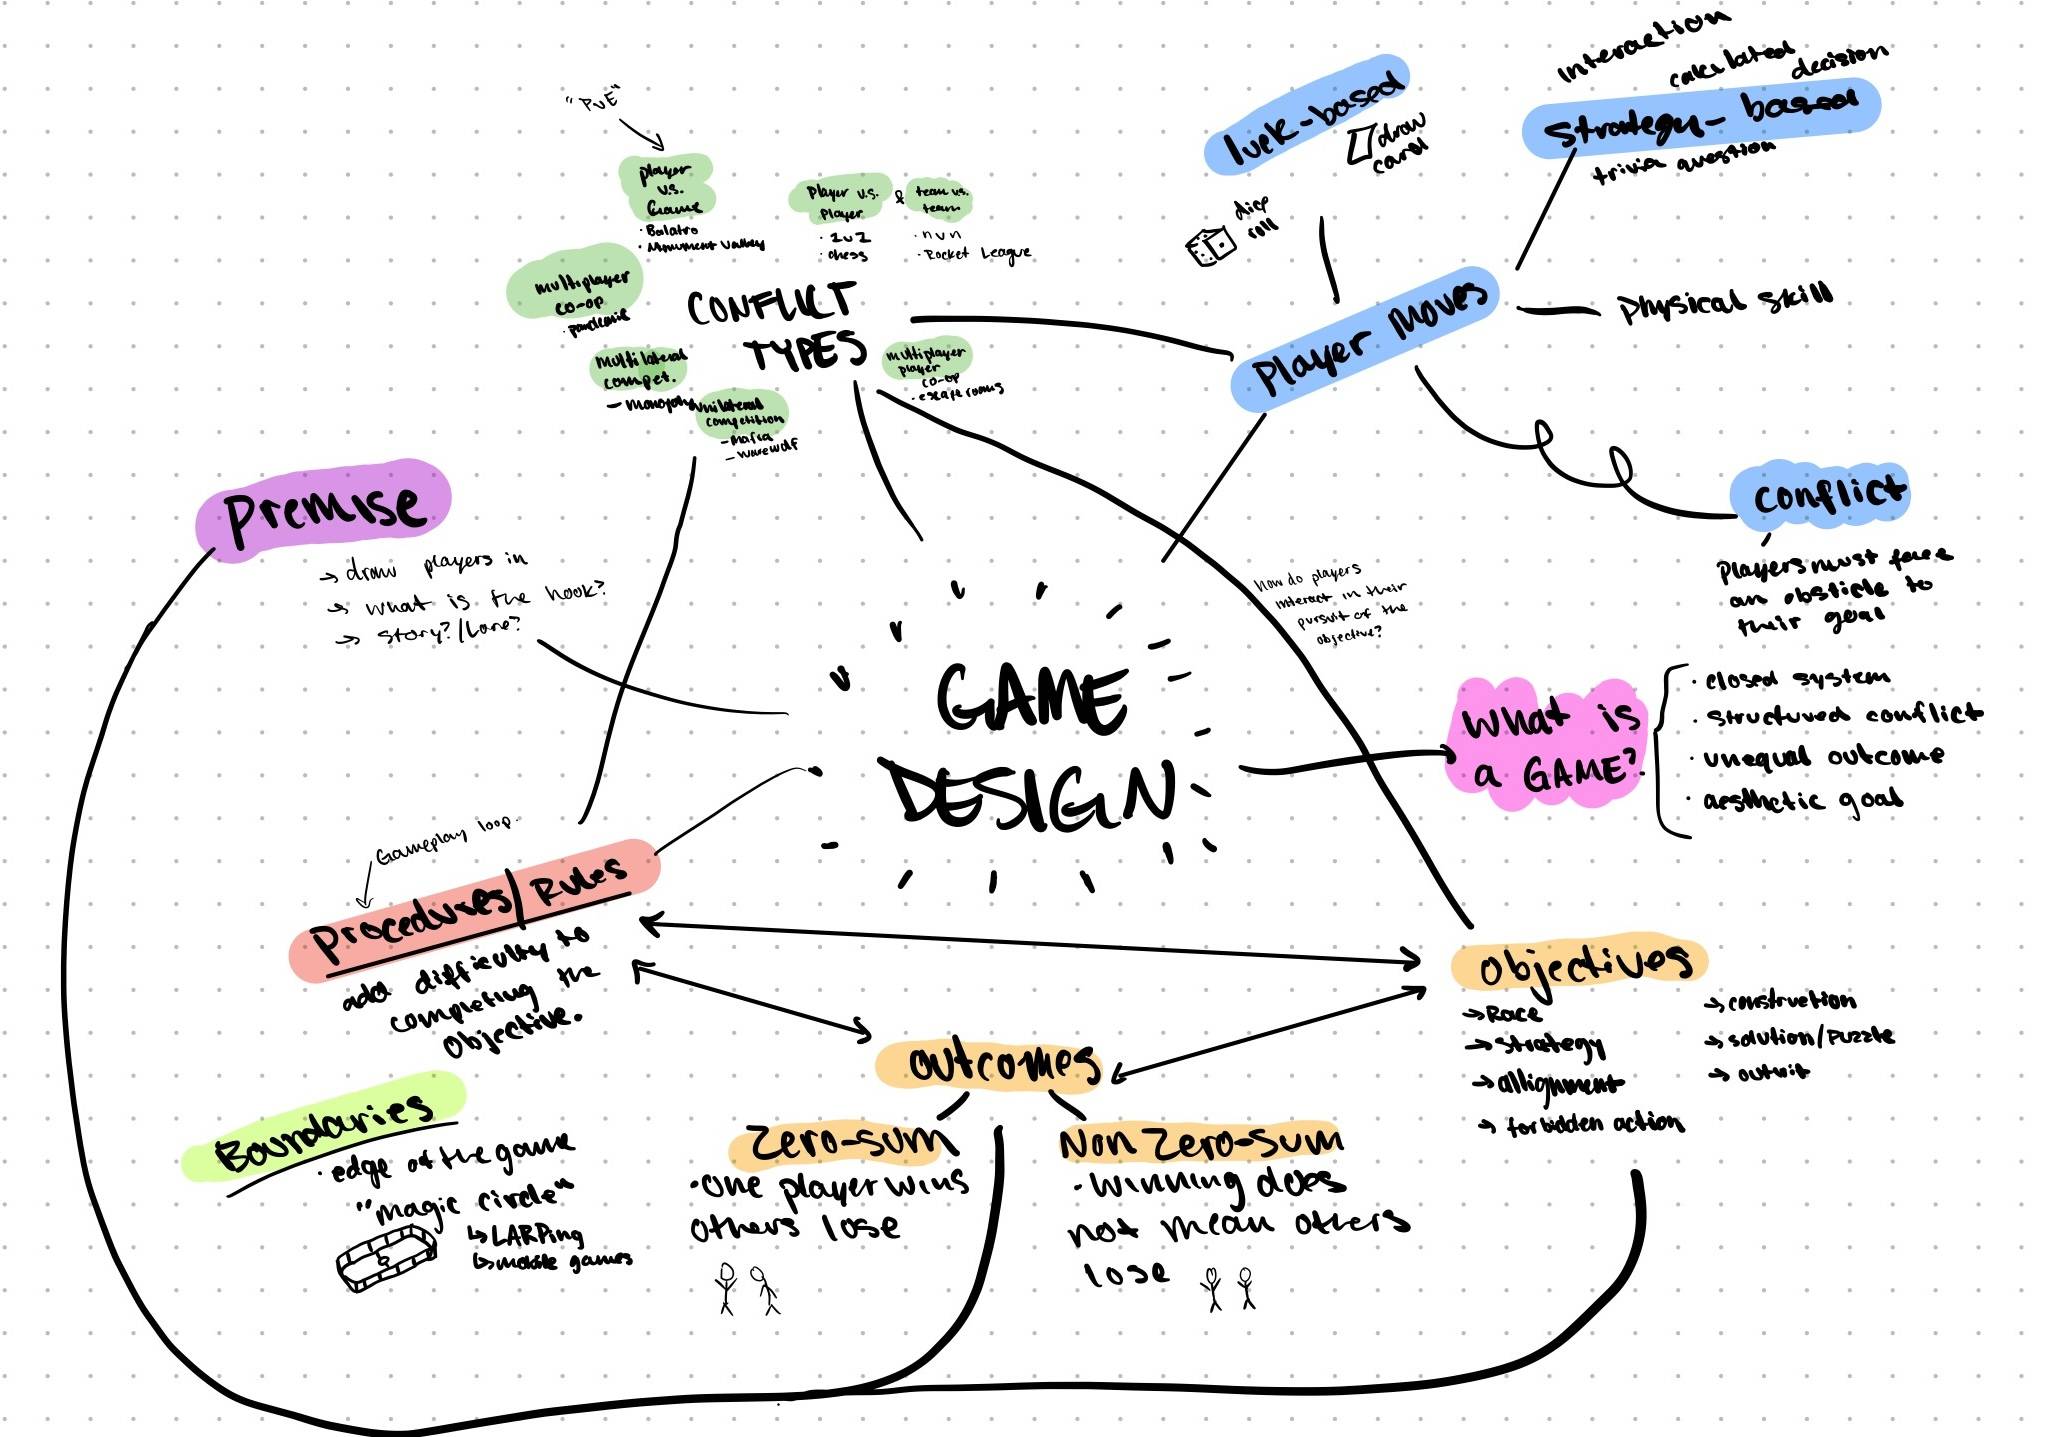 "PvE"
player
v.s.
Game
· Balatro
· Monument Valley
Player v.s.
Player
· 1v1
· chess
&
team vs.
team
· nvn
· Rocket League
multiplayer
co-op
· pandemic
CONFLICT
TYPES
multilateral
compet.
- monopoly
unilateral
competition
- mafia
- werewolf
multiplayer
player
co-op
· escape rooms
luck-based
draw
card
dice
roll
Interaction
calculated
decision
strategy-based
trivia question
Player Moves
Physical skill
conflict
Players must face
an obsticle to
their goal
Premise
→ draw players in
→ what is the hook?
→ story?/Lore?
How do players
interact in their
pursuit of the
objective?
GAME
DESIGN
What is
a GAME?
· closed system
· structured conflict
· unequal outcome
· aesthetic goal
Gameplay loop.
Procedures/Rules
add difficulty to
completing the
objective.
Objectives
→ Race
→ strategy
→ allignment
→ forbidden action
→ construction
→ solution/Puzzle
→ outwit
outcomes
Zero-sum
· one player wins
others lose
Non Zero-sum
· winning does
not mean others
lose
Boundaries
· edge of the game
"magic circle"
↳ LARPing
↳ mobile games